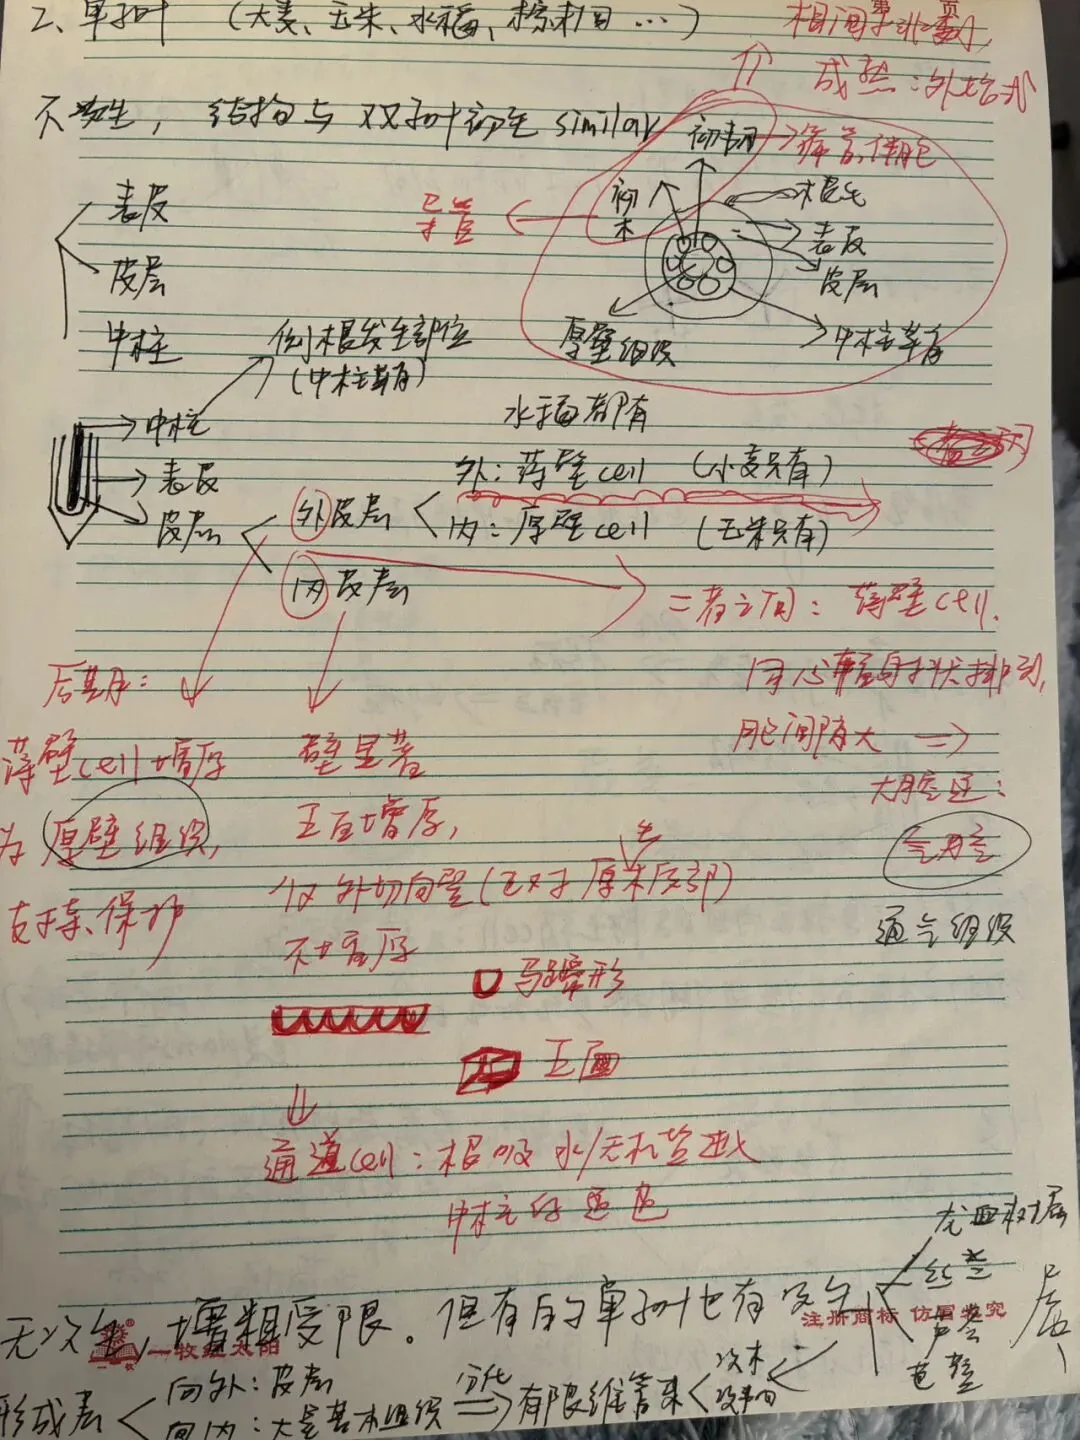 2、单子叶 (大麦、玉米、水稻、棕榈 …)
相间排列,
成熟:外始式
不次生, 结构与双子叶初生 similar
初韧 → 筛管、伴胞
初木
导管
根毛
表皮
皮层
中柱鞘
厚壁组织
表皮
皮层
中柱
侧根发生部位
(中柱鞘)
水稻都有
中柱
表皮
皮层
外皮层
外:薄壁cell (小麦只有)
内:厚壁cell (玉米只有)
内皮层
二者之间: 薄壁cell.
同心辐射状排列,
胞间隙大 ⇒
大腔逐:
气腔
通气组织
后期:
薄壁cell增厚
为 厚壁组织,
支持、保护
壁显著
五面增厚,
仅外切向壁(正对原生木质部)
不增厚
马蹄形
五面
通道cell:根吸水/无机盐进
中柱的通道
龙血树属
丝兰
芦荟
无次生,增粗受限。但有的单子叶也有次生
注册商标 仿冒必究
一枚红太阳
形成层
向外:皮层
向内:大量基本组织
分化
⇒有限维管束
次木
次韧